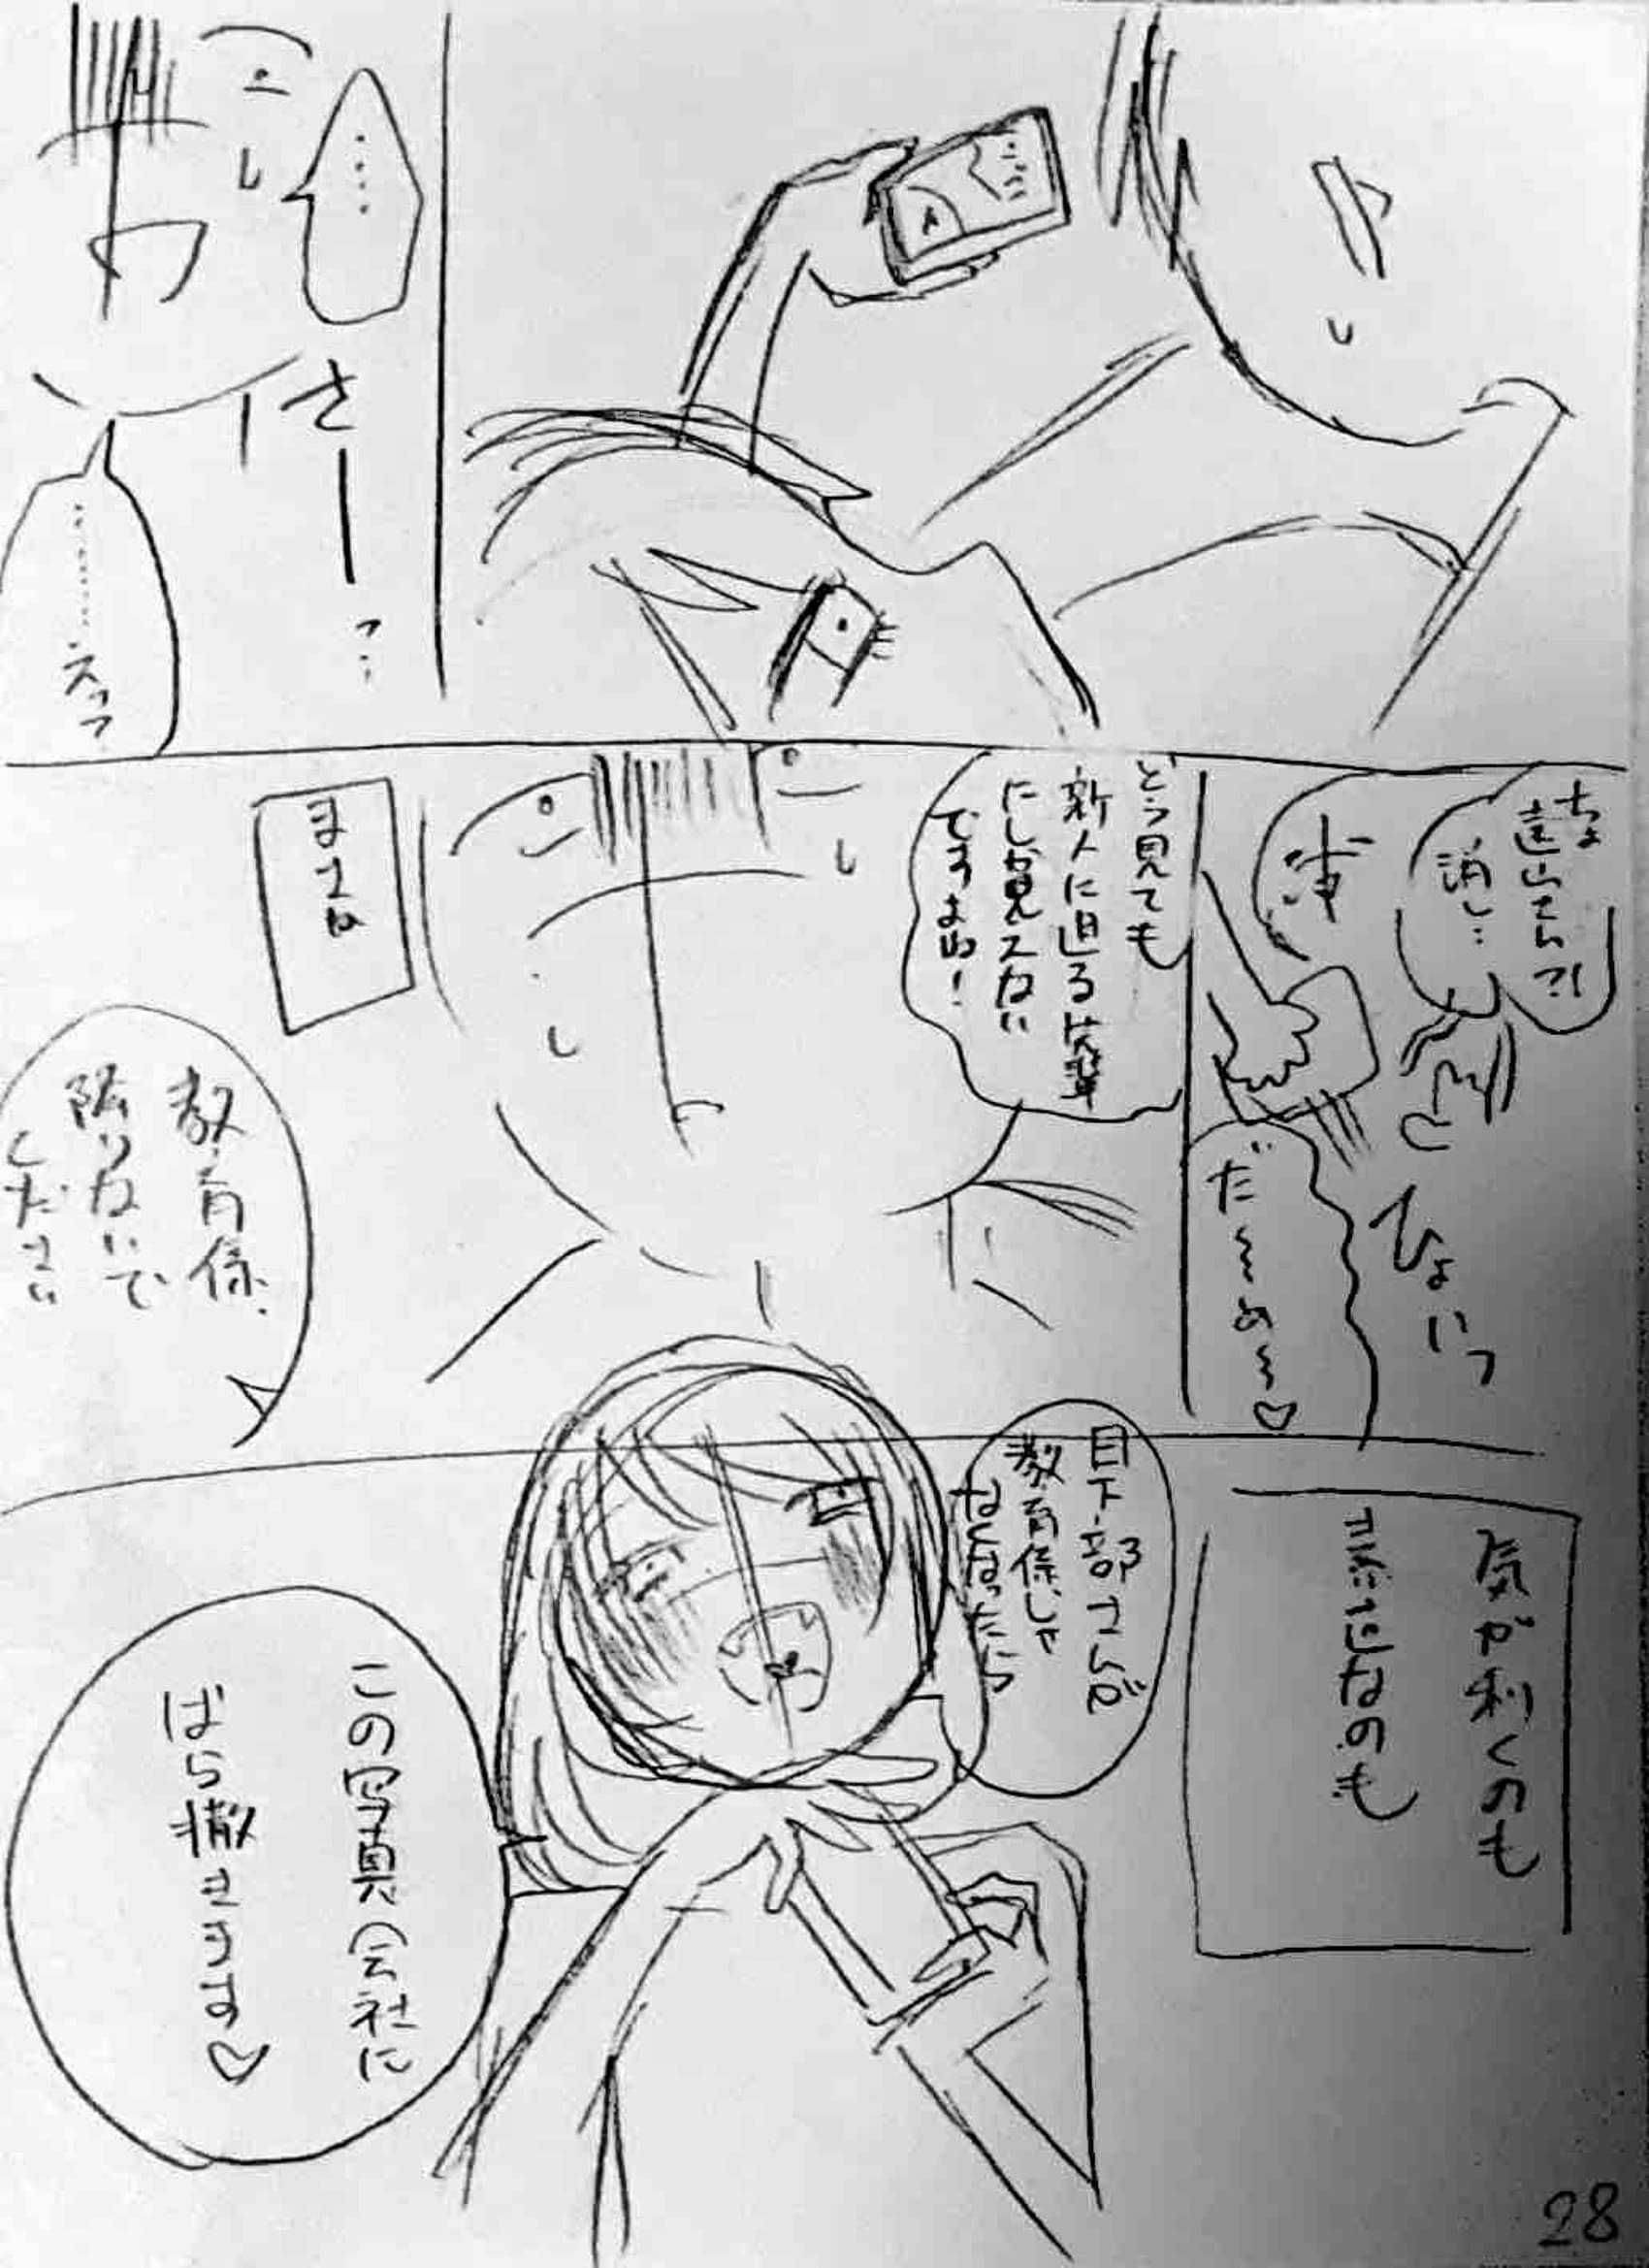 ……
さーっ…
………えっっ
ちょ
遠山さん?!
消し…
ひょいっ
だ〜め〜♡
どう見ても
新人に迫る先輩
にしか見えない
ですよね!
まさか
教育係、
降りないで
ください
気が利くのも
日下部さんが
教育係じゃ
なくなったら
この写真会社に
ばら撒きます♡
28